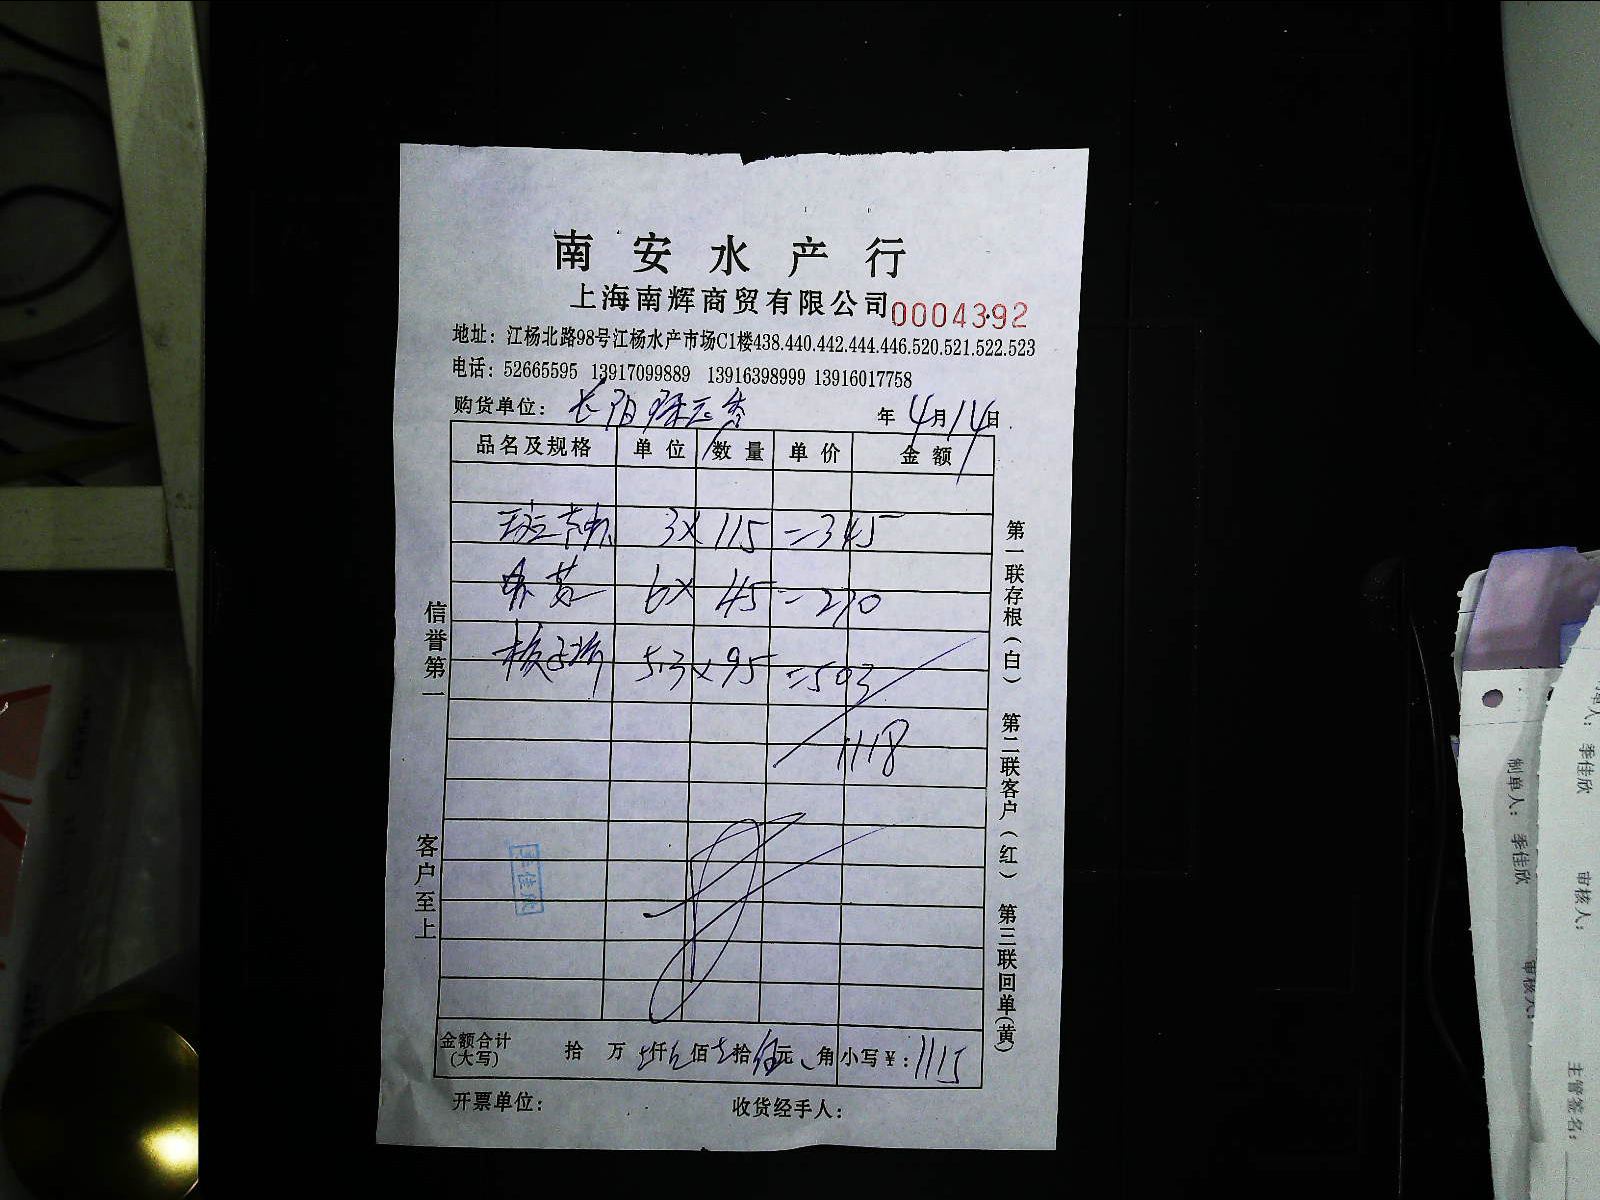 南安水产行
上海南辉商贸有限公司 0004392
地址：江杨北路98号江杨水产市场C1楼438.440.442.444.446.520.521.522.523
电话：52665595 13917099889 13916398999 13916017758
购货单位：长阳 年4月14日
品名及规格 单位 数量 单价 金额
3×115=345
6×45=270
5.3×95=503
1118
金额合计(大写) 拾 万 仟 佰 拾 伍元 角 小写¥：1115
开票单位： 收货经手人：
信誉第一
客户至上
第一联存根(白) 第二联客户(红) 第三联回单(黄)
季佳欣
制单人：季佳欣
审核人：
季佳欣
审核人：
主管签名：